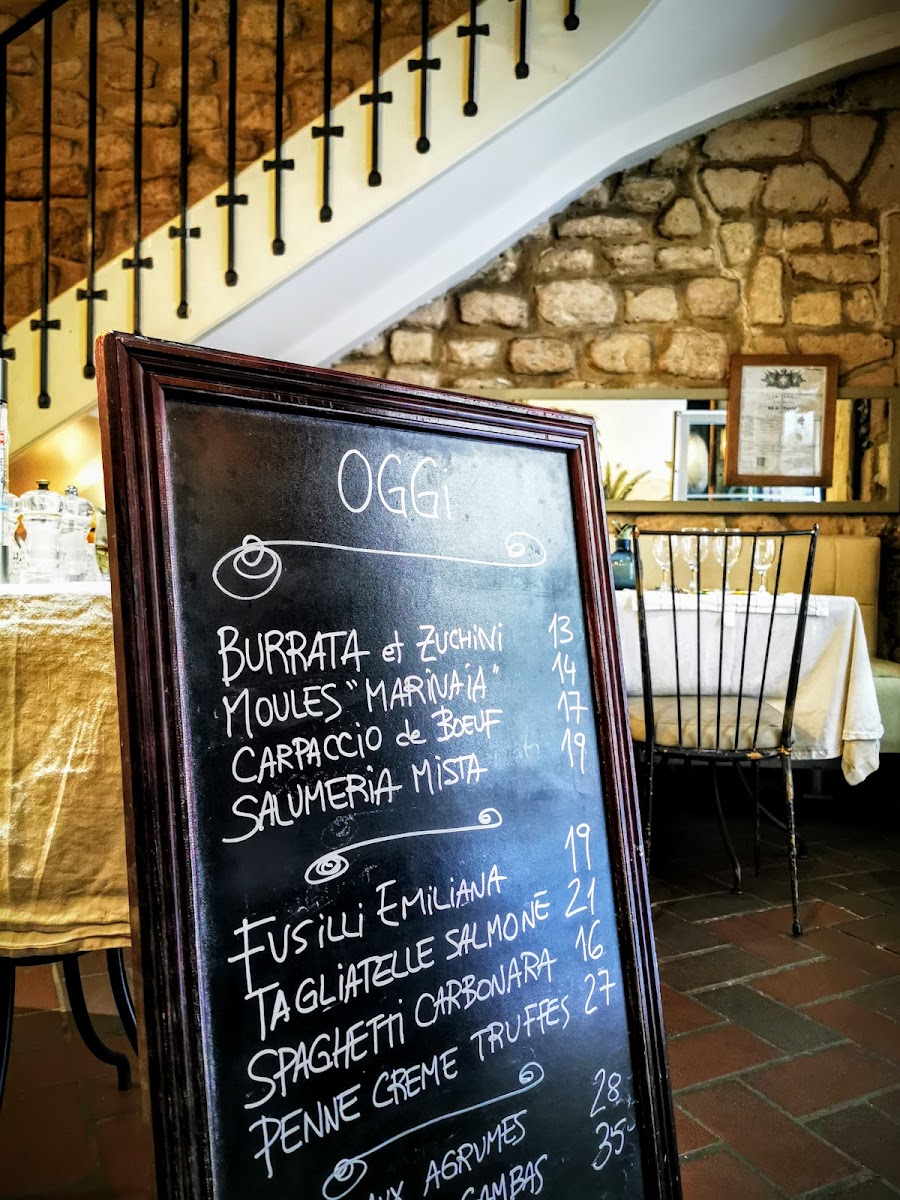 OGGi
BURRATA et ZUCHINI 13
MOULES "MARINAIA" 14
CARPACCIO de BOEUF 17
SALUMERIA MISTA 19
FUSILLI EMILIANA 19
TAGLIATELLE SALMONE 21
SPAGHETTI CARBONARA 16
PENNE CREME TRUFFES 27
AUX AGRUMES 28
GAMBAS 35